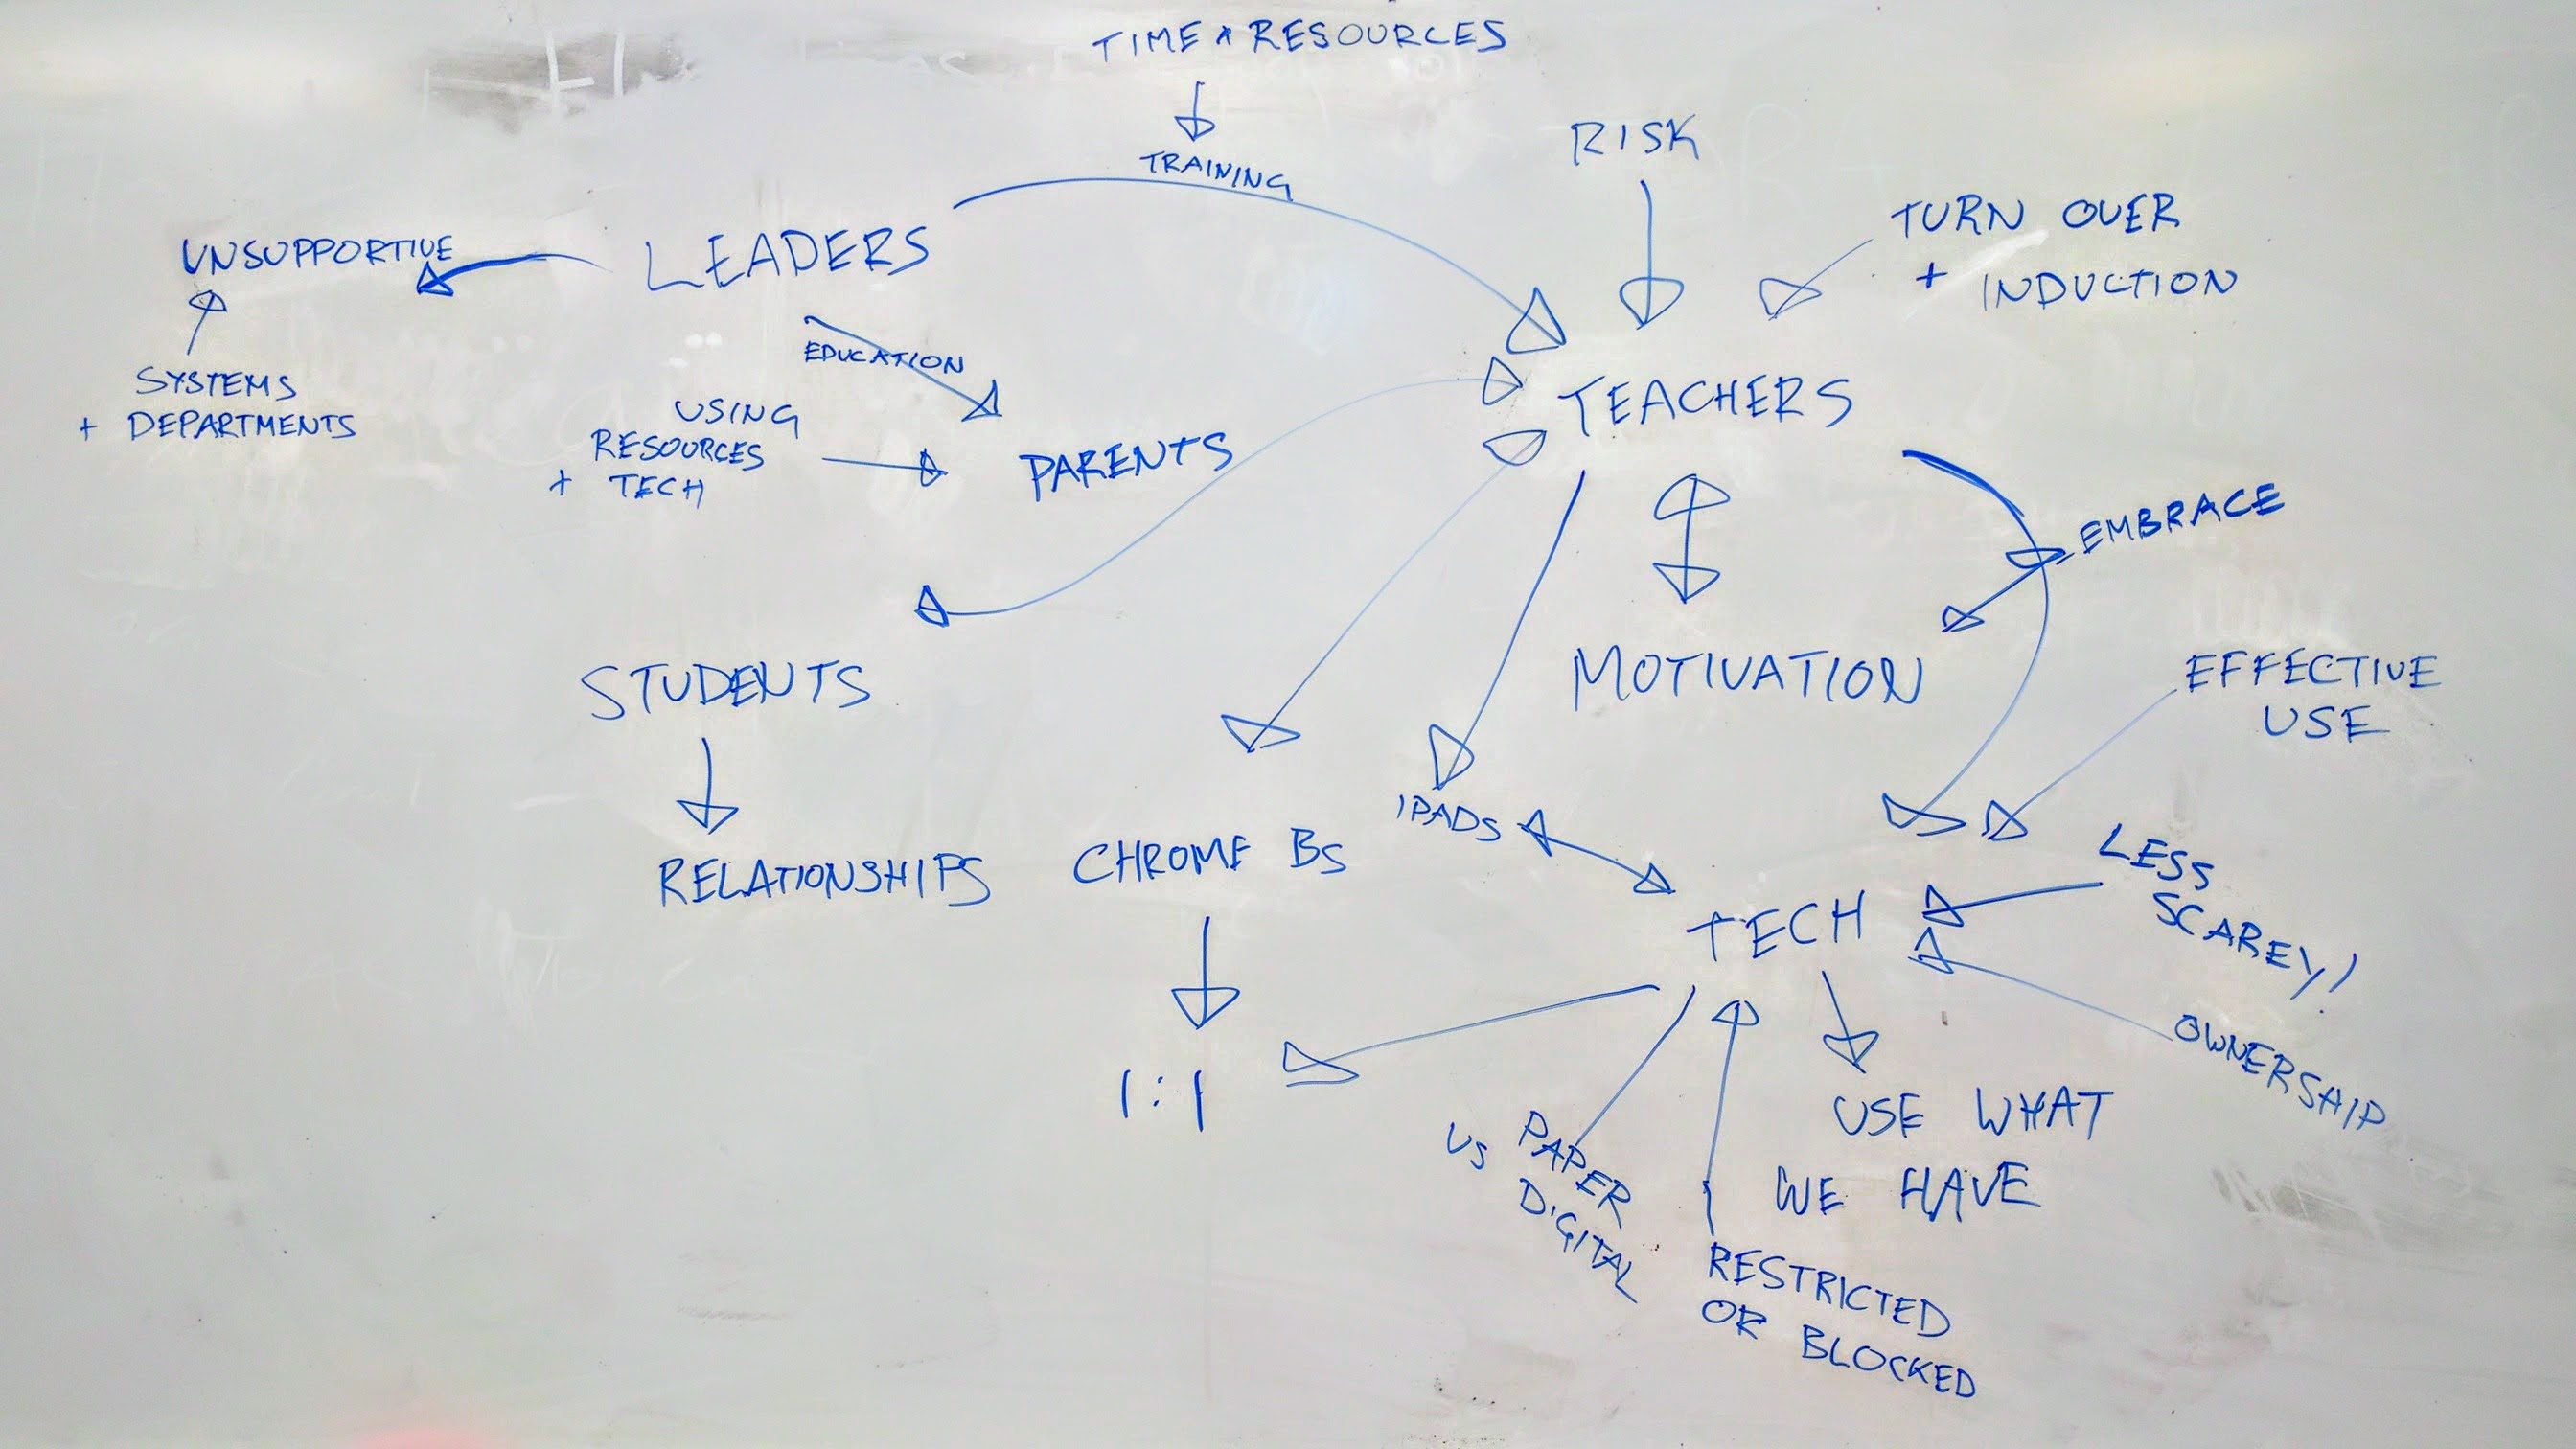 TIME + RESOURCES
TRAINING
RISK
TURN OVER
+ INDUCTION
UNSUPPORTIVE
LEADERS
SYSTEMS
+ DEPARTMENTS
EDUCATION
USING
RESOURCES
+ TECH
PARENTS
TEACHERS
EMBRACE
STUDENTS
MOTIVATION
EFFECTIVE
USE
RELATIONSHIPS
CHROME BS
IPADS
TECH
LESS
SCAREY!
OWNERSHIP
1:1
PAPER
VS DIGITAL
USE WHAT
WE HAVE
RESTRICTED
OR BLOCKED